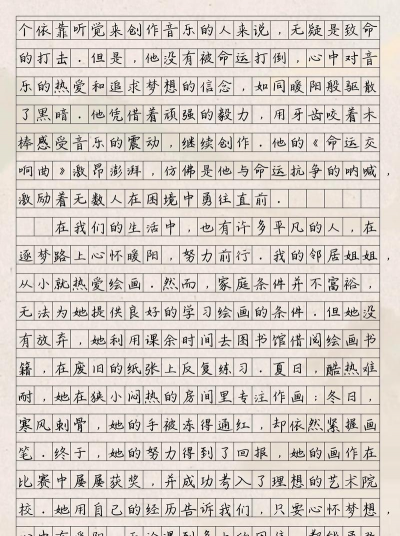 个依靠听觉来创作音乐的人来说，无疑是致命
的打击．但是，他没有被命运打倒，心中对音
乐的热爱和追求梦想的信念，如同暖阳般驱散
了黑暗．他凭借着顽强的毅力，用牙齿咬着木
棒感受音乐的震动，继续创作．他的《命运交
响曲》激昂澎湃，仿佛是他与命运抗争的呐喊，
激励着无数人在困境中勇往直前．
在我们的生活中，也有许多平凡的人，在
逐梦路上心怀暖阳，努力前行．我的邻居姐姐，
从小就热爱绘画．然而，家庭条件并不富裕，
无法为她提供良好的学习绘画的条件．但她没
有放弃，她利用课余时间去图书馆借阅绘画书
籍，在废旧的纸张上反复练习．夏日，酷热难
耐，她在狭小闷热的房间里专注作画；冬日，
寒风刺骨，她的手被冻得通红，却依然紧握画
笔．终于，她的努力得到了回报，她的画作在
比赛中屡屡获奖，并成功考入了理想的艺术院
校．她用自己的经历告诉我们，只要心怀梦想，